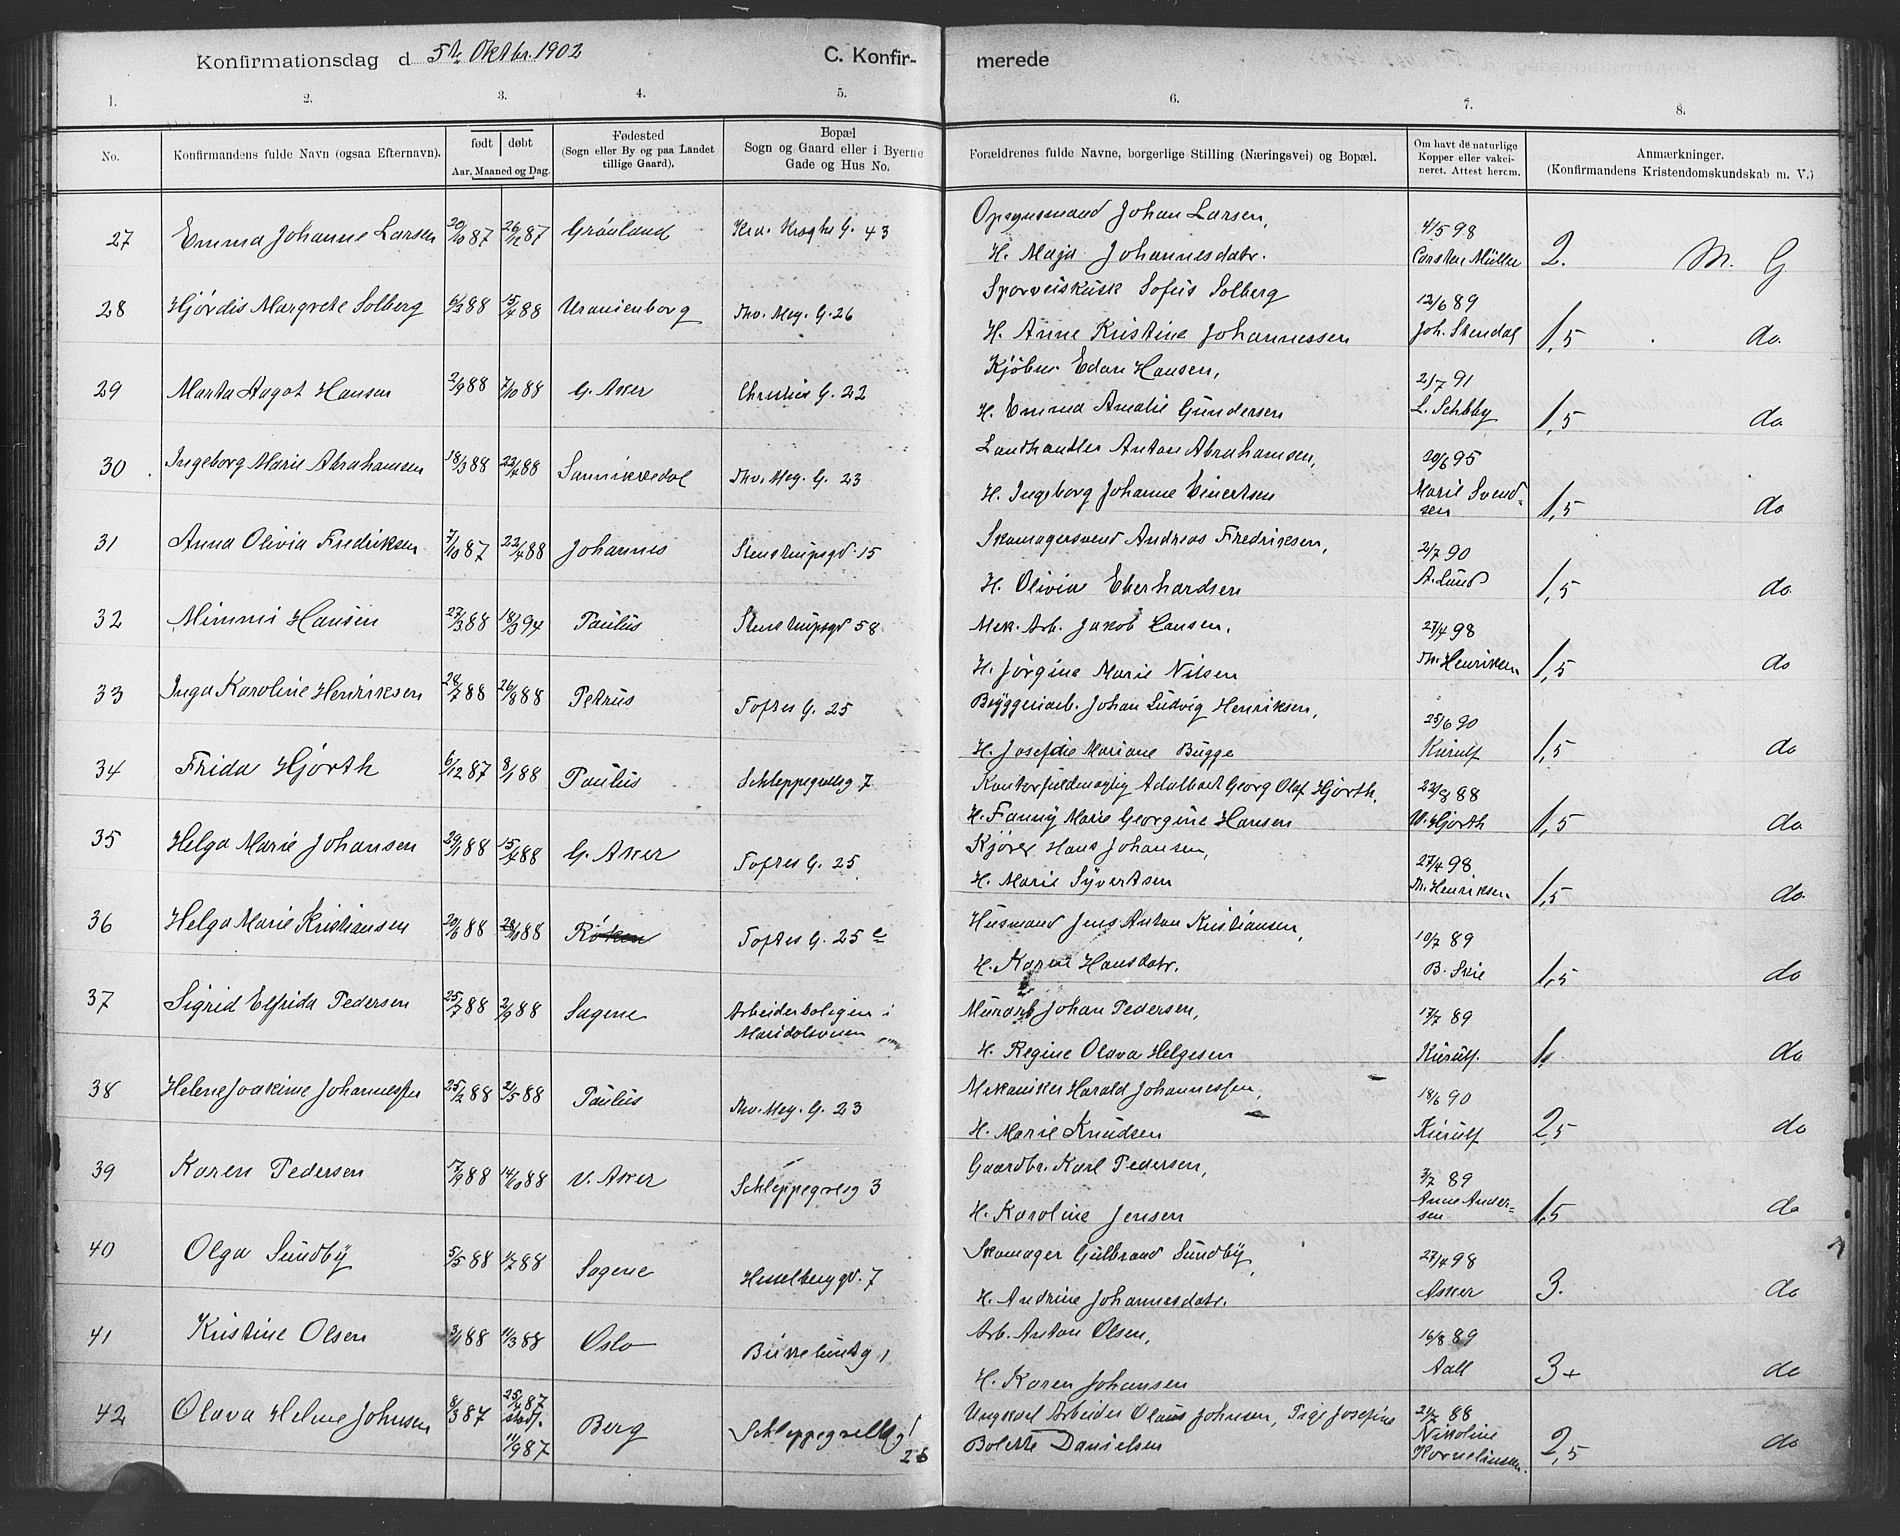 Konfirmationsdag d 5te Oktbr. 1902 C. Konfir- merede
1. 2. 3. 4. 5. 6. 7. 8.
No. Konfirmandens fulde Navn (ogsaa Efternavn). født døbt Aar, Maaned og Dag. Fødested (Sogn eller By og paa Landet tillige Gaard). Bopæl Sogn og Gaard eller i Byerne Gade og Hus No. Forældrenes fulde Navne, borgerlige Stilling (Næringsvei) og Bopæl. Om havt de naturlige Kopper eller vakcineret. Attest herom. Anmærkninger. (Konfirmandens Kristendomskundskab m. V.)
27 Emma Johanne Larsen 20/10 87 26/12 87 Grønland Kra. Kroghs G. 43 Opsynsmand Johan Larsen,
H. Maja Johannesdatr. 4/5 98 Carsten Müller 2. M. G
28 Hjørdis Margrete Solberg 6/3 88 15/4 88 Uranienborg Thv. Mey. G. 26 Sporveiskusk Sofus Solberg
H. Anne Kristine Johannessen 12/6 89 Joh. Stendal 1,5 do
29 Marta Aagot Hansen 2/9 88 7/10 88 G. Aker Christies G. 22 Kjøbm. Edan Hansen,
H. Emma Amalie Gundersen 2/7 91 L. Schby 1,5 do
30 Ingeborg Marie Abrahamsen 18/3 88 22/4 88 Sannikedal Thv. Mey. G. 23 Landhandler Anton Abrahamsen,
H. Ingeborg Johanne Einertsen 20/6 95 Marie Svendsen 1,5 do
31 Anna Olivia Fredriksen 7/10 87 22/4 88 Johannes Stenstrupsgd 15 Skomagersvend Andreas Fredriksen,
H. Olivia Eberhardsen 2/7 90 A. Lund 1,5 do
32 Mimmi Hansen 27/3 88 18/3 94 Paulus Stenstrupsgd 58 Mek. Arb. Jakob Hansen,
H. Jørgine Marie Nilsen 27/4 98 Th. Henriksen 1,5 do
33 Inga Karoline Henriksen 28/7 88 26/8 88 Petrus Toftes G. 25 Bryggeriarb. Johan Ludvig Henriksen,
H. Josefdie Mariane Bugge 25/6 90 Kierulf 1,5 do
34 Frida Hjorth 6/12 87 8/1 88 Paulus Schleppegrellsg 7 Kontorfuldmægtig Adalbert Georg Olaf Hjorth,
H. Fanny Marie Georgine Hansen 22/8 88 W. Hjorth 1,5 do
35 Helga Marie Johansen 29/1 88 15/4 88 G. Aker Toftes G. 25 Kjører Hans Johansen,
H. Marie Syvertsen 27/4 98 Th. Henriksen 1,5 do
36 Helga Marie Kristiansen 20/6 88 Røken Toftes G. 25 c Husmand Jens Anton Kristiansen,
H. Karen Hansdatr. 10/7 89 B. Skie 1,5 do
37 Sigrid Elfrida Pedersen 25/7 88 2/9 88 Sagene Arbeiderboligen i Maridalsveien Murarb Johan Pedersen,
H. Regine Olava Helgesen 17/7 89 Kierulf 1. do
38 Helene Joakime Johannessen 25/2 88 21/5 88 Paulus Thv. Mey. G. 23 Mekaniker Harald Johannessen,
H. Marie Knudsen 18/6 90 Kierulf 2,5 do
39 Karen Pedersen 17/9 88 14/10 88 V. Aker Schleppegrelsg 3 Gaardbr. Karl Pedersen,
H. Karoline Jensen 3/7 89 Anne Andersen 1,5 do
40 Olga Sundby 5/5 88 1/7 88 Sagene Hesselberggd. 7 Skomager Gulbrand Sundby,
H. Andrine Johannesdatr. 27/4 98 Asker 3. do
41 Kristine Olsen 3/1 88 11/3 88 Oslo Birkelundg 1 Arb. Anton Olsen,
H. Karen Johansen 16/8 89 Aall 3+ do
42 Olava Helene Johnsen 8/3 87 25/4 87 stadf. 11/9 87 Berg Schleppegrellsg 26 Ungkarl Arbeider Olaus Johnsen, Pige Josefine
Bolette Danielsen 21/7 88 Nikoline Korneliussen. 2,5 do